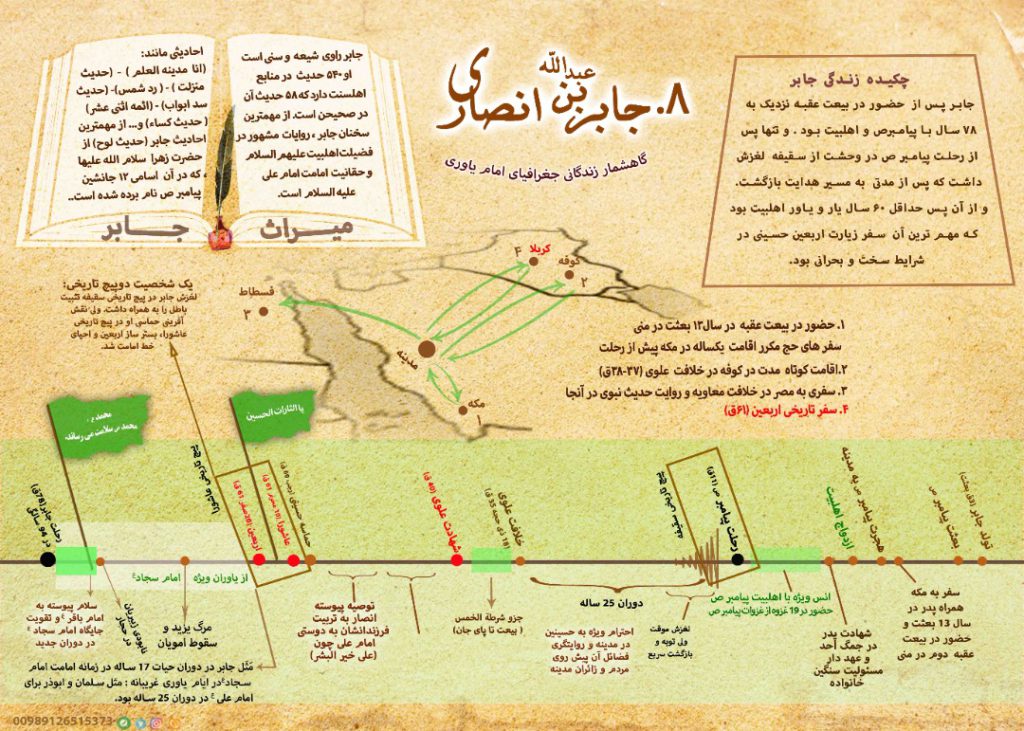 ۸. جابر بن عبدالله انصاری
گاهشمار زندگانی جغرافیای امام یاوری
چکیده زندگی جابر
جابر پس از حضور در بیعت عقبه نزدیک به
۷۸ سال با پیامبرص و اهلبیت بود . و تنها پس
از رحلت پیامبر ص در وحشت از سقیفه لغزش
داشت که پس از مدتی به مسیر هدایت بازگشت.
و از آن پس حداقل ۶۰ سال یار و یاور اهلبیت بود
که مهم ترین آن سفر زیارت اربعین حسینی در
شرایط سخت و بحرانی بود.
جابر راوی شیعه و سنی است
او ۵۴۰ حدیث در منابع
اهلسنت دارد که ۵۸ حدیث آن
در صحیحن است. از مهمترین
سخنان جابر ، روایات مشهور در
فضیلت اهلبیت علیهم السلام
و حقانیت امامت امام علی
علیه السلام است.
احادیثی مانند:
(انا مدینه العلم ) - (حدیث
منزلت ) - ( رد شمس)- (حدیث
سد ابواب) - (ائمه اثنی عشر)
(حدیث کساء) و... از مهمترین
احادیث جابر (حدیث لوح) از
حضرت زهرا سلام الله علیها
، که در آن اسامی ۱۲ جانشین
پیامبر ص نام برده شده است..
میراث جابر
کربلا
۴
کوفه
۲
فسطاط
۳
مدینه
مکه
۱
یک شخصیت دوپیچ تاریخی:
لغزش جابر در پیچ تاریخی سقیفه تثبیت
باطل را به همراه داشت. ولی نقش
آفرینی حماسی او در پیچ تاریخی
عاشورا، بستر ساز اربعین و احیای
خط امامت شد.
۱. حضور در بیعت عقبه در سال۱۳ بعثت در منی
سفر های حج مکرر اقامت یکساله در مکه پیش از رحلت
۲.اقامت کوتاه مدت در کوفه در خلافت علوی (۳۷-۳۸ق)
۳. سفری به مصر در خلافت معاویه و روایت حدیث نبوی در آنجا
۴. سفر تاریخی اربعین (۶۱ق)
یا الثارات الحسین
محمد بر سلامت می رساند
تولد جابر (3ق بعثت)
بعثت پیامبر ص
هجرت پیامبر ص به مدینه
ازدواج اهلبیت
رحلت پیامبر ص (11ق)
پیچ تاریخی سقیفه
خلافت علوی
(18 ذی حجه 35 ق)
شهادت علوی (40 ق)
حماسه حسینی
عاشورا (10 محرم 61 ق)
اربعین (20صفر 61 ق)
پیچ تاریخی عاشورا
رحلت جابر(78ق)
در 94 سالگی
سفر به مکه
همراه پدر در
سال 13 بعثت و
حضور در بیعت
عقبه دوم در منی
شهادت پدر
در جمگ احد
و عهد دار
مسئولیت سنگین
خانواده
انس ویژه با اهلبیت پیامبر ص
حضور در 19 غزوه از غزوات پیامبر ص
لغزش موقت
ولی توبه و
بازگشت سریع
دوران 25 ساله
احترام ویژه به حسنین
در مدینه و روایتگری
فضائل آن پیش روی
مردم و زائران مدینه
جزو شرطة الخمس
( بیعت تا پای جان)
توصیه پیوسته
انصار به تربیت
فرزندانشان به دوستی
امام علی چون
(علی خیر البشر)
از یاوران ویژه امام سجاد ع
مرگ یزید و
سقوط امویان
نابودی زبیریان
در حجاز
سلام پیوسته به
امام باقر ع و تقویت
جایگاه امام سجاد ع
در دوران جدید
مَثَل جابر در دوران حیات 17 ساله در زمانه امامت امام
سجادع در ایام یاوری غریبانه : مثل سلمان و ابوذر برای
امام علی ع در دوران 25 ساله بود.
00989126515373